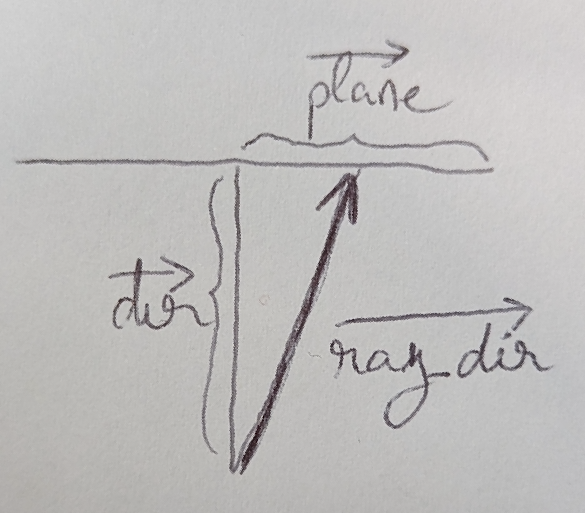 plane
dir
ray_dir